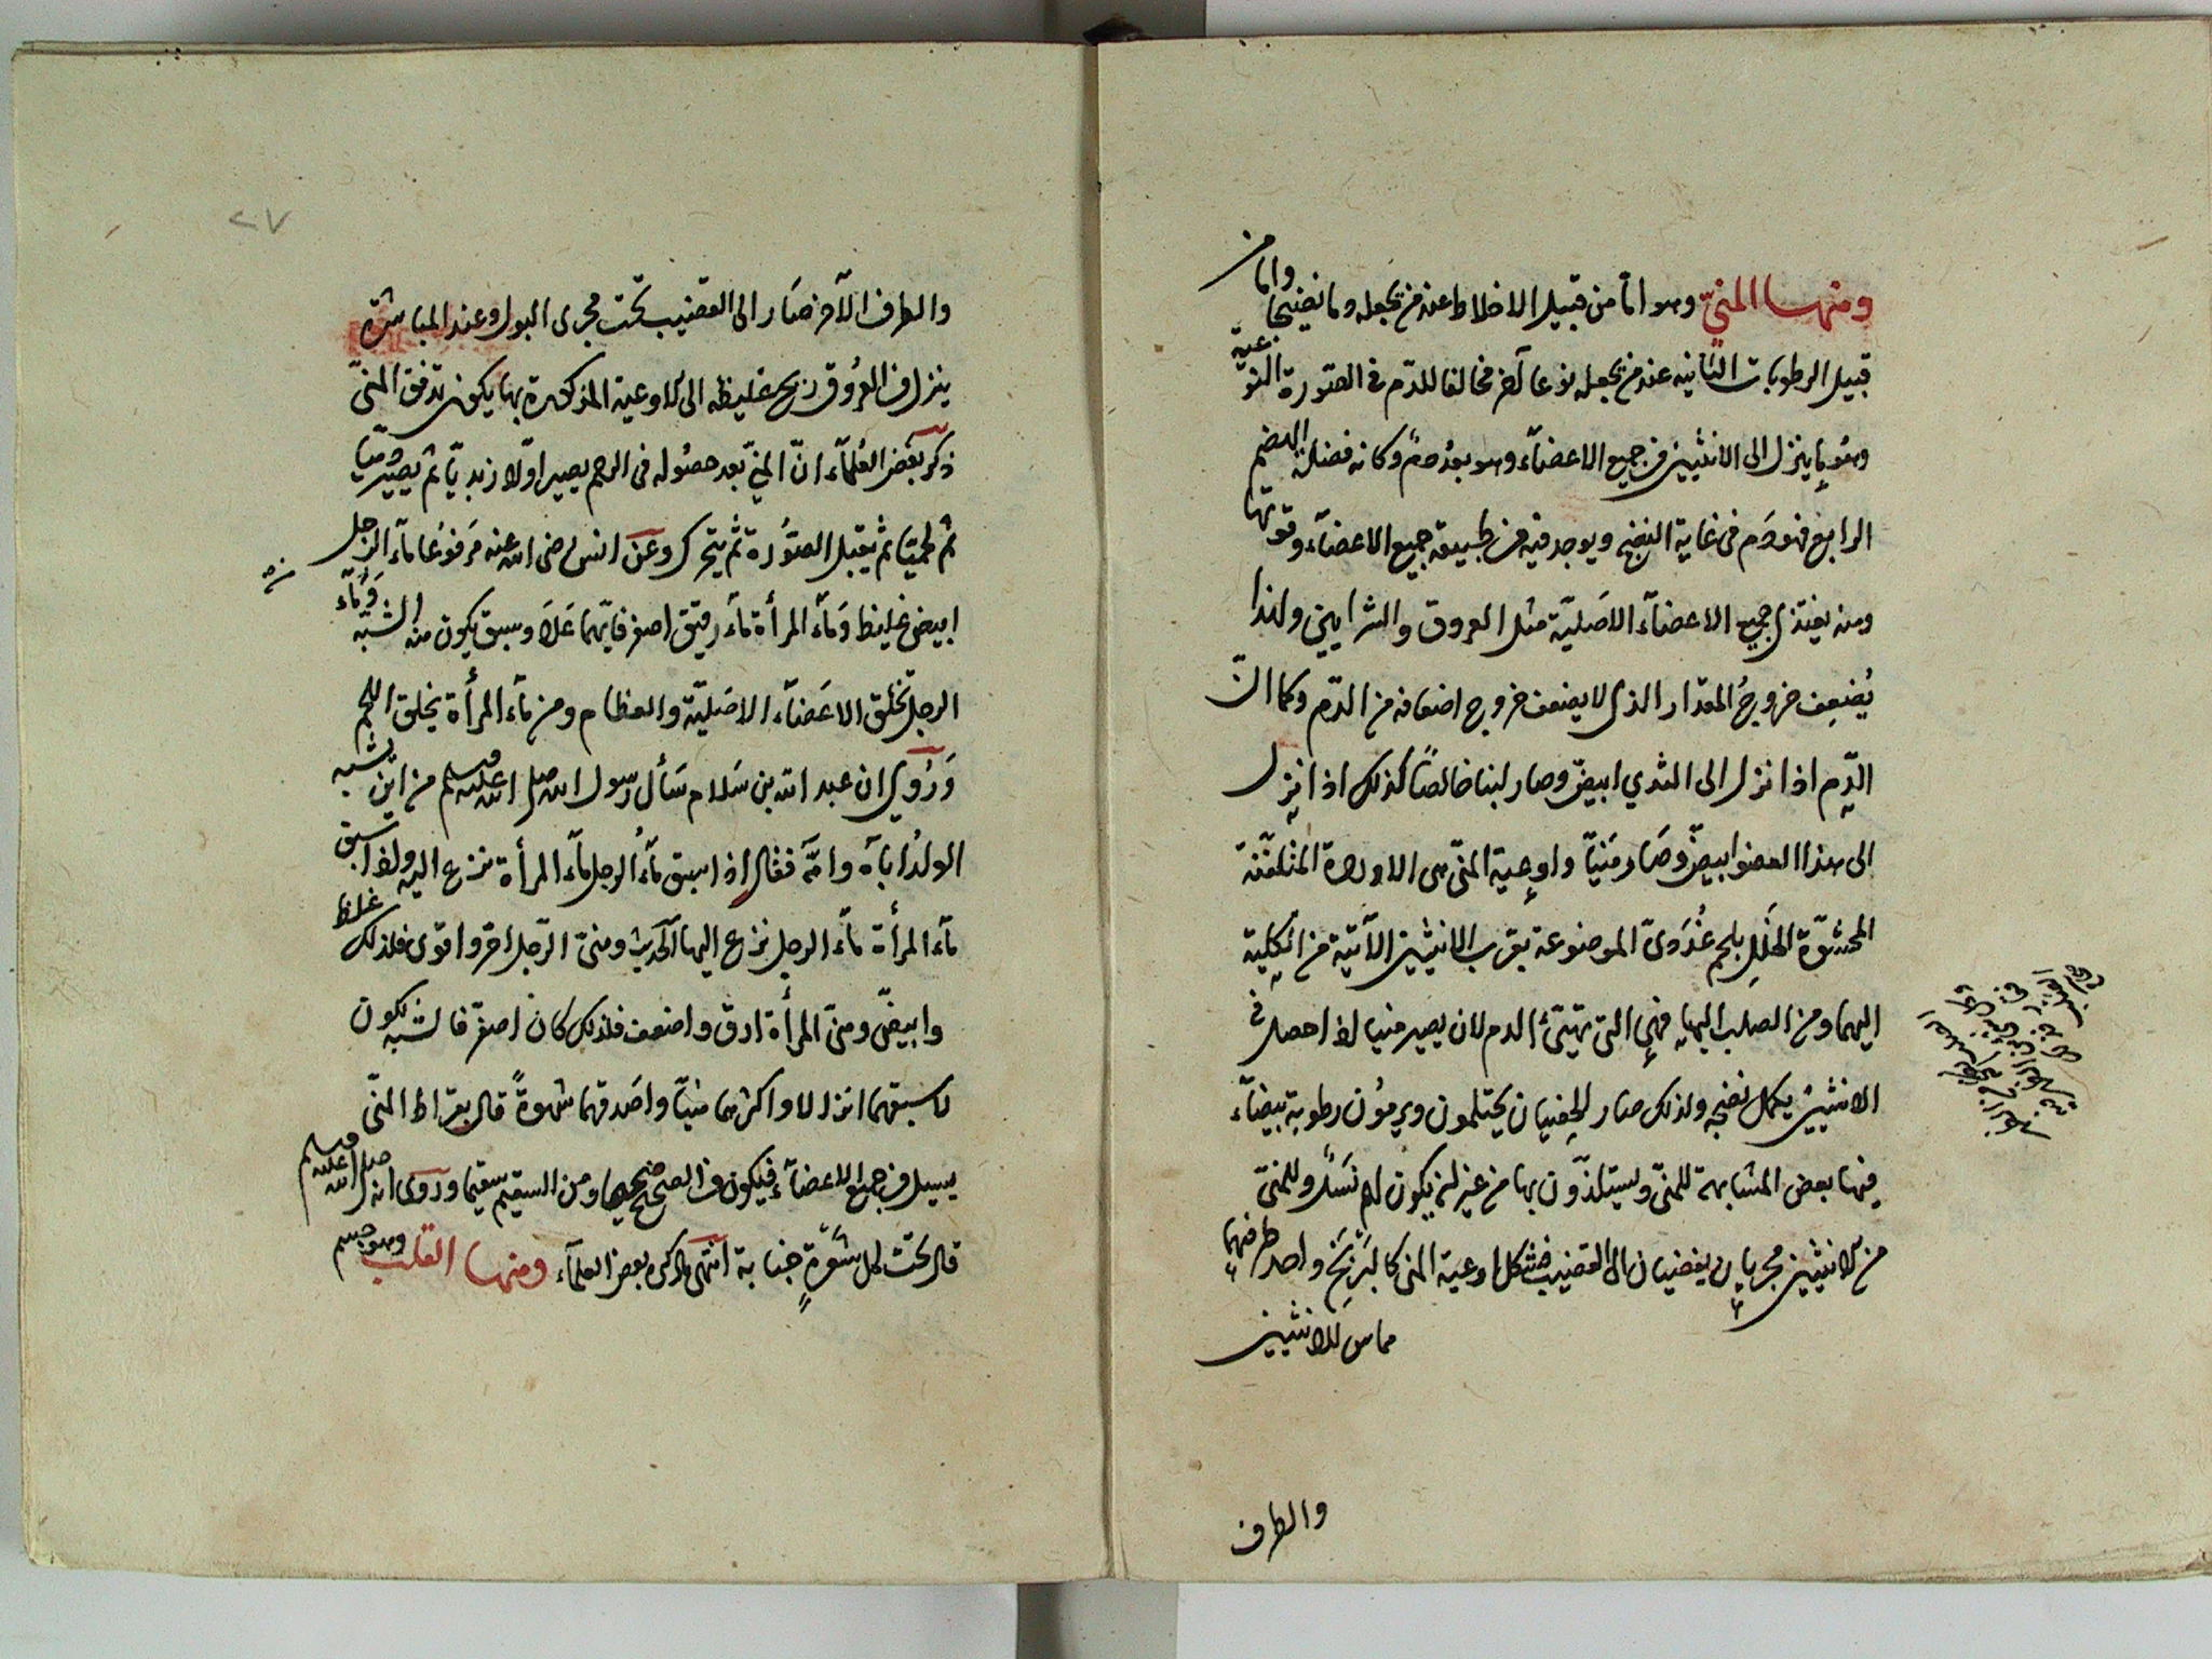 ومنها المنيّ وهو اما من قبيل الاخلاط عند من يجعله دما نضيجا واما من
قبيل الرطوبات الثانيه عند من يجعله نوعا آخر مخالفا للدّم فى الصّورة النوعية
وهُو ما ينزل الى الانثيين من جميع الاعضآء وهو بعدُ دمٌ وكانه فضلة الهضم
الرابع فهو دَم فى غاية النضج ويوجد فيه من طبيعة جميع الاعضآء وقوتها
ومنه يغتذى جميع الاعضآء الاصَليّة مثل العروق والشرايين ولهذا
يُضعِف خروجُ المقدار الذى لا يضعف خروج اضعافه من الدّم وكما انّ
الدّم اذا نزل الى الثدي ابيضّ وصار لبنا خالصًا كذلك اذا نزل
الى هذا العضو ابيضّ وصَار مَنيّا واوعية المنّى هى الاوردة المتلفّفة
المحشوّة الخَلَلِ بلحم غُدَدىّ الموضوعة بقرب الانثيين الآتية من الكلية
اليهما ومن الصلب اليها فهى التى تهيّئ الدم لان يصير منيا اذا حصل فى
الانثيين يكمل نضجه ولذلك صار الخصيان يحتلمون ويرمؤن رطوبة بيضآء
فيها بعض المشابهة للمنىّ ويستلذّون بها من غير ان يكون لهم نَسَلٌ وللمنىّ
من الانثيين مجريان يفضيان الى القضيب فشكل اوعية المنى كالبَرْبَخ واحد طرفيها
مماس للانثيين
والطرف
٢٧
والطرف الآخر صَار الى القضيب تحت مجرى البول وعند المباشرة
ينزل من العرُوق ريح غليظه الى الاوعية المذكورة بها يكون تدفق المنىّ
ذكر بعض العُلمآء انّ المنىّ بعد حصُوله فى الرحم يصير اوّلا زبديّا ثم يصير دميّا
ثم لحميّا ثم يقبل الصّوُرة ثم يتحرك وعن انس رضى الله عنه مَرفوُعا مآء الرّجل
ابيض غليظ وَمآء المرأة مآء رقيق اصفر فايّهما عَلَا وسبق يكون منه الشبه وَمآء
الرجل تخلق الاعَضآء الاصَليّة والعظام ومن مآء المرأة يخلق اللحم
وَرُوِىَ ان عبد الله بن سَلام سَأل رسول الله صلى الله عليه وسلم من اين يشبه
الولدُ اباه وامّه فقال اذا سبق مآءُ الرجل مآءَ المرأة نزع اليه واذا سبق
مآء المرأة مآء الرجل نزع اليها الحَديث ومنىّ الرّجل احرّ واقوى فلذلك غلظ
وابيضّ ومنىّ المرأة ارق واضعف فلذلك كان اصفرّ فالشبه يكون
لاسبقهما انزالا واكثرهما منيّا واصَدقهما شهوةً قال بقراط المنّى
يسيل من جميع الاعضآء فيكون من الصحيح صحيحا ومن السقيم سقيما وروى انه صلى الله عليه وسلم
قال تحت كل شعَرةٍ جنابة انتهى ما ذكره بعض العلمآء ومنها القلب وهو جسم